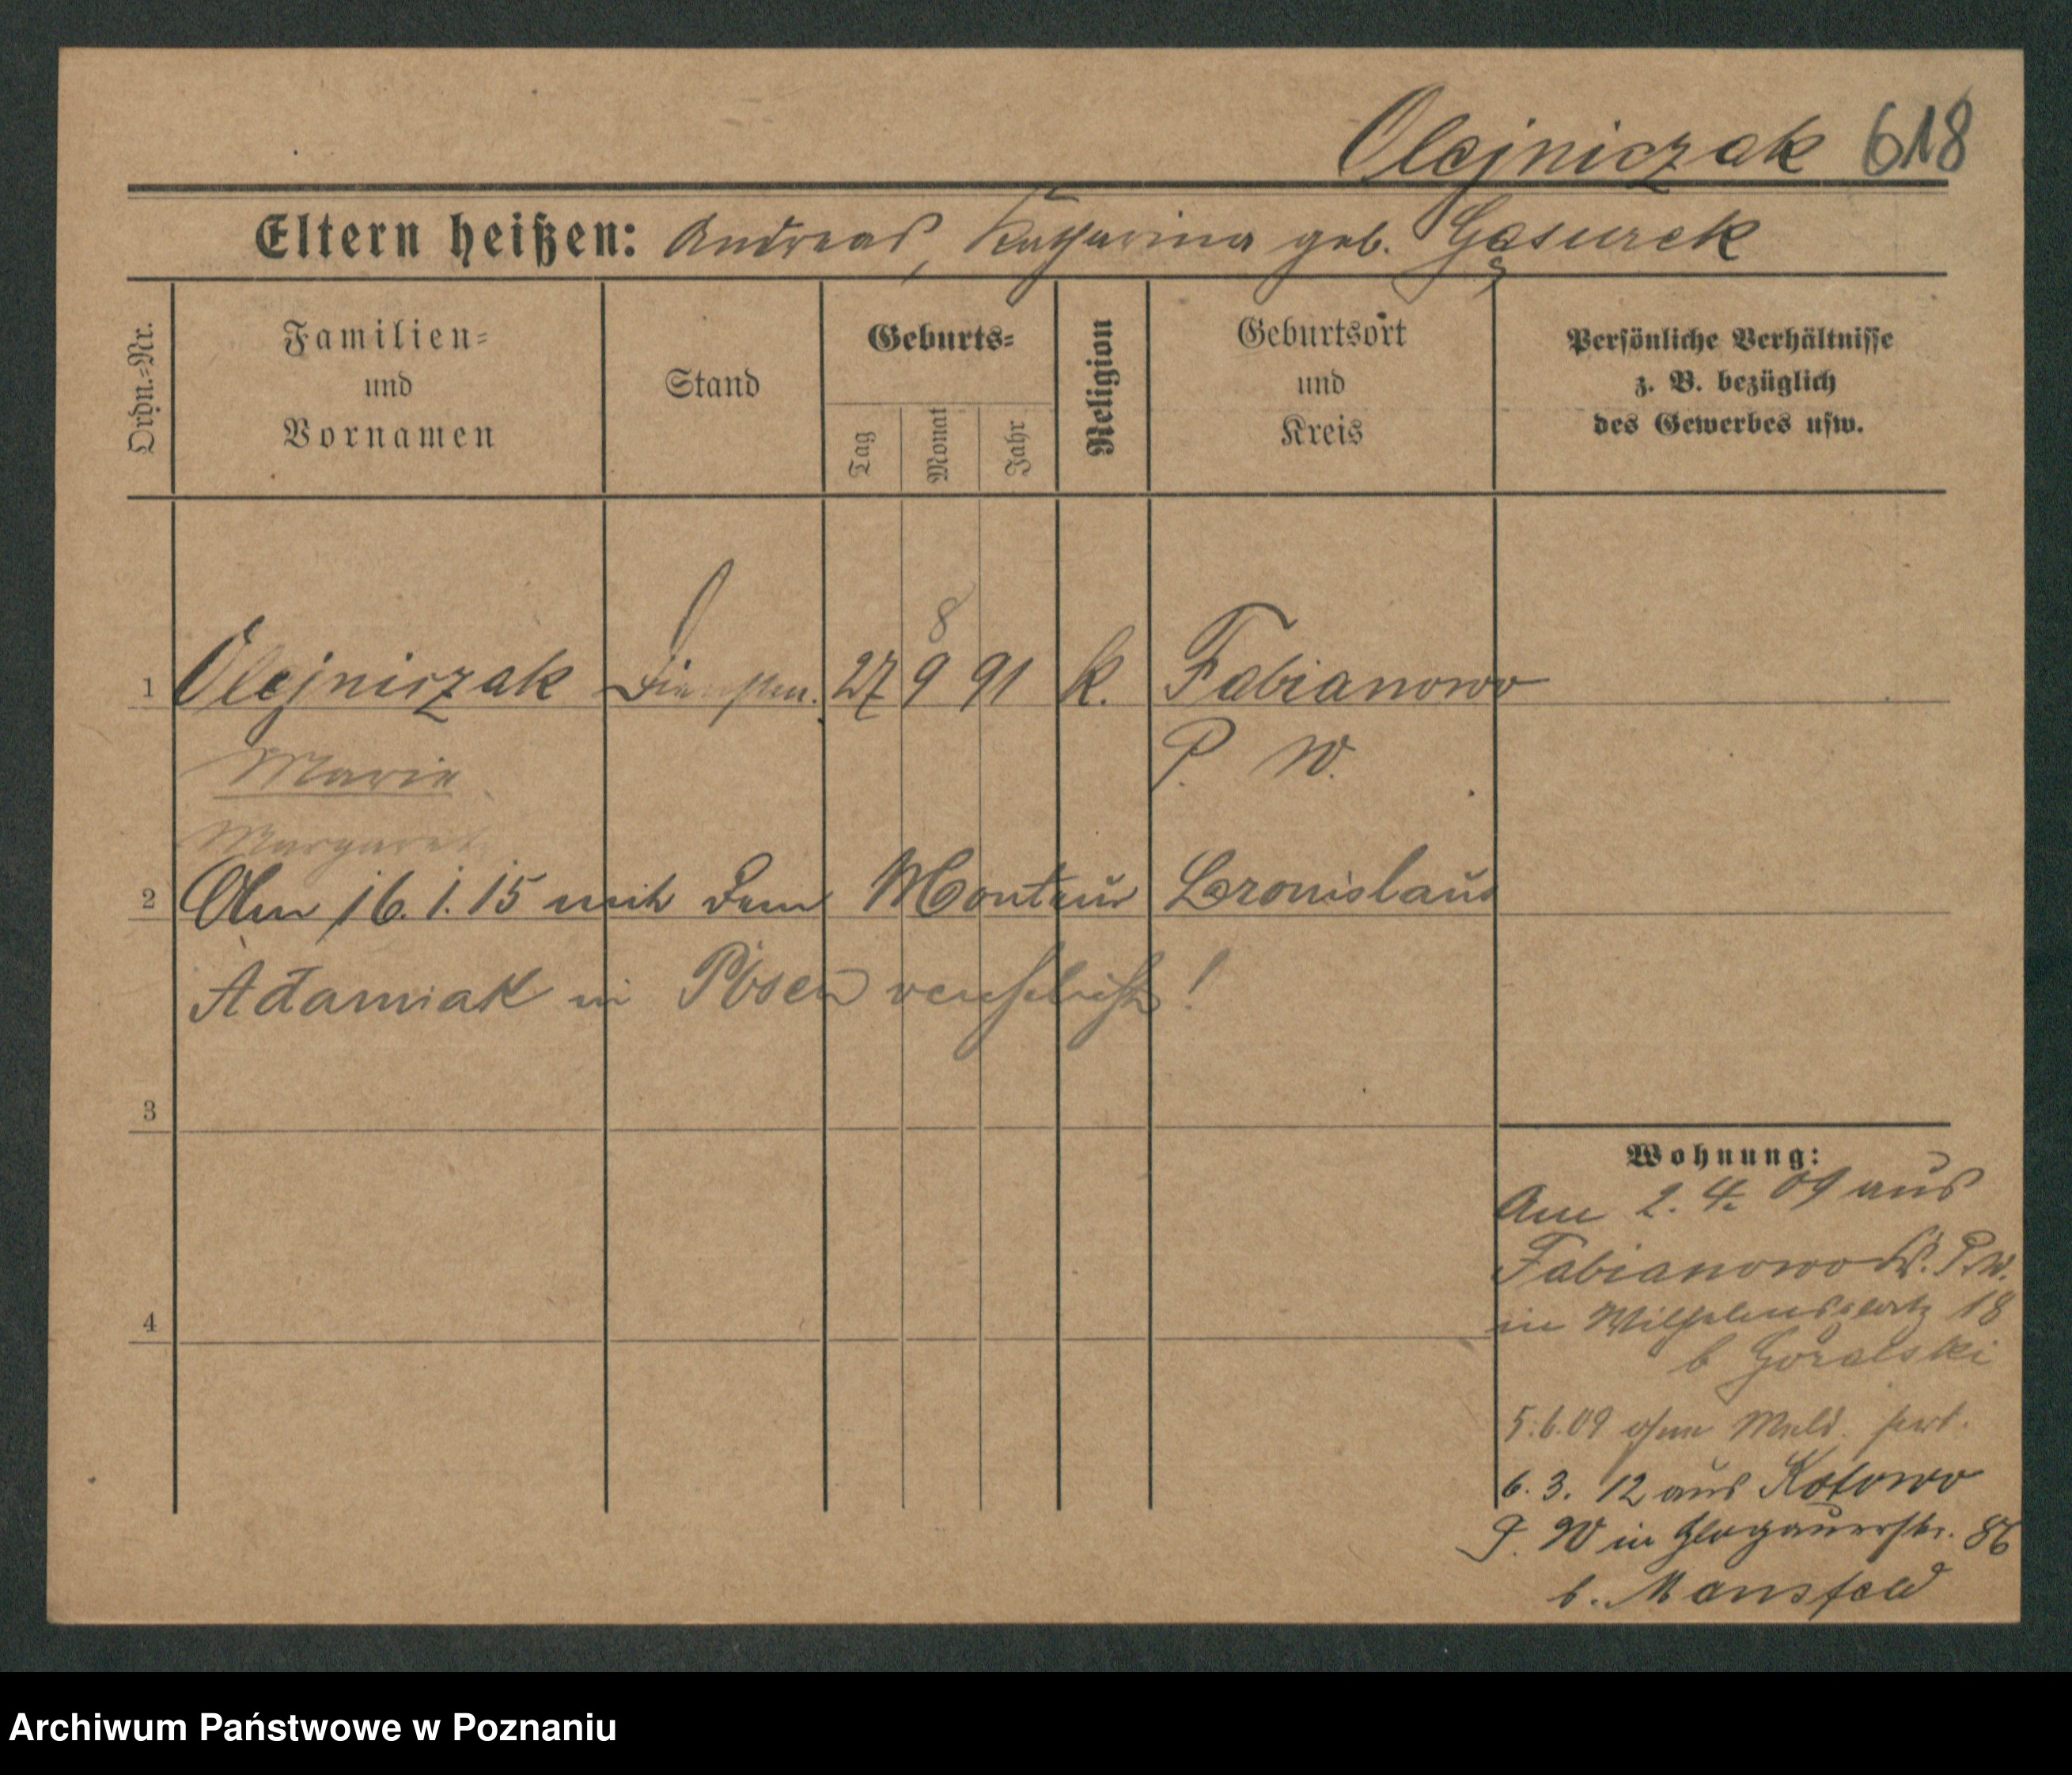 Olejniczak 618
Eltern heißen: Andreas, Katharina geb. Gąsurek
Ordn.=Nr.
Familien=
und
Vornamen
Stand
Geburts=
Tag
Monat
Jahr
Religion
Geburtsort
und
Kreis
Persönliche Verhältnisse
z. B. bezüglich
des Gewerbes usw.
8
1 Olejniczak Dienstm. 27 9 91 k. Fabianowo
Maria P. W.
Margaret
2 Am 16.1.15 mit dem Monteur Bronislaus
Adamiak in Posen verehelicht!
3
4
Wohnung:
Am 2. 4. 09 aus
Fabianowo P.W.
in Wilhelmsplatz 18
b Góralski
5.6.09 ohne Meld. fort.
6. 3. 12 aus Kotowo
P. W in Glogauerstr. 86
b. Mansfeld
Archiwum Państwowe w Poznaniu